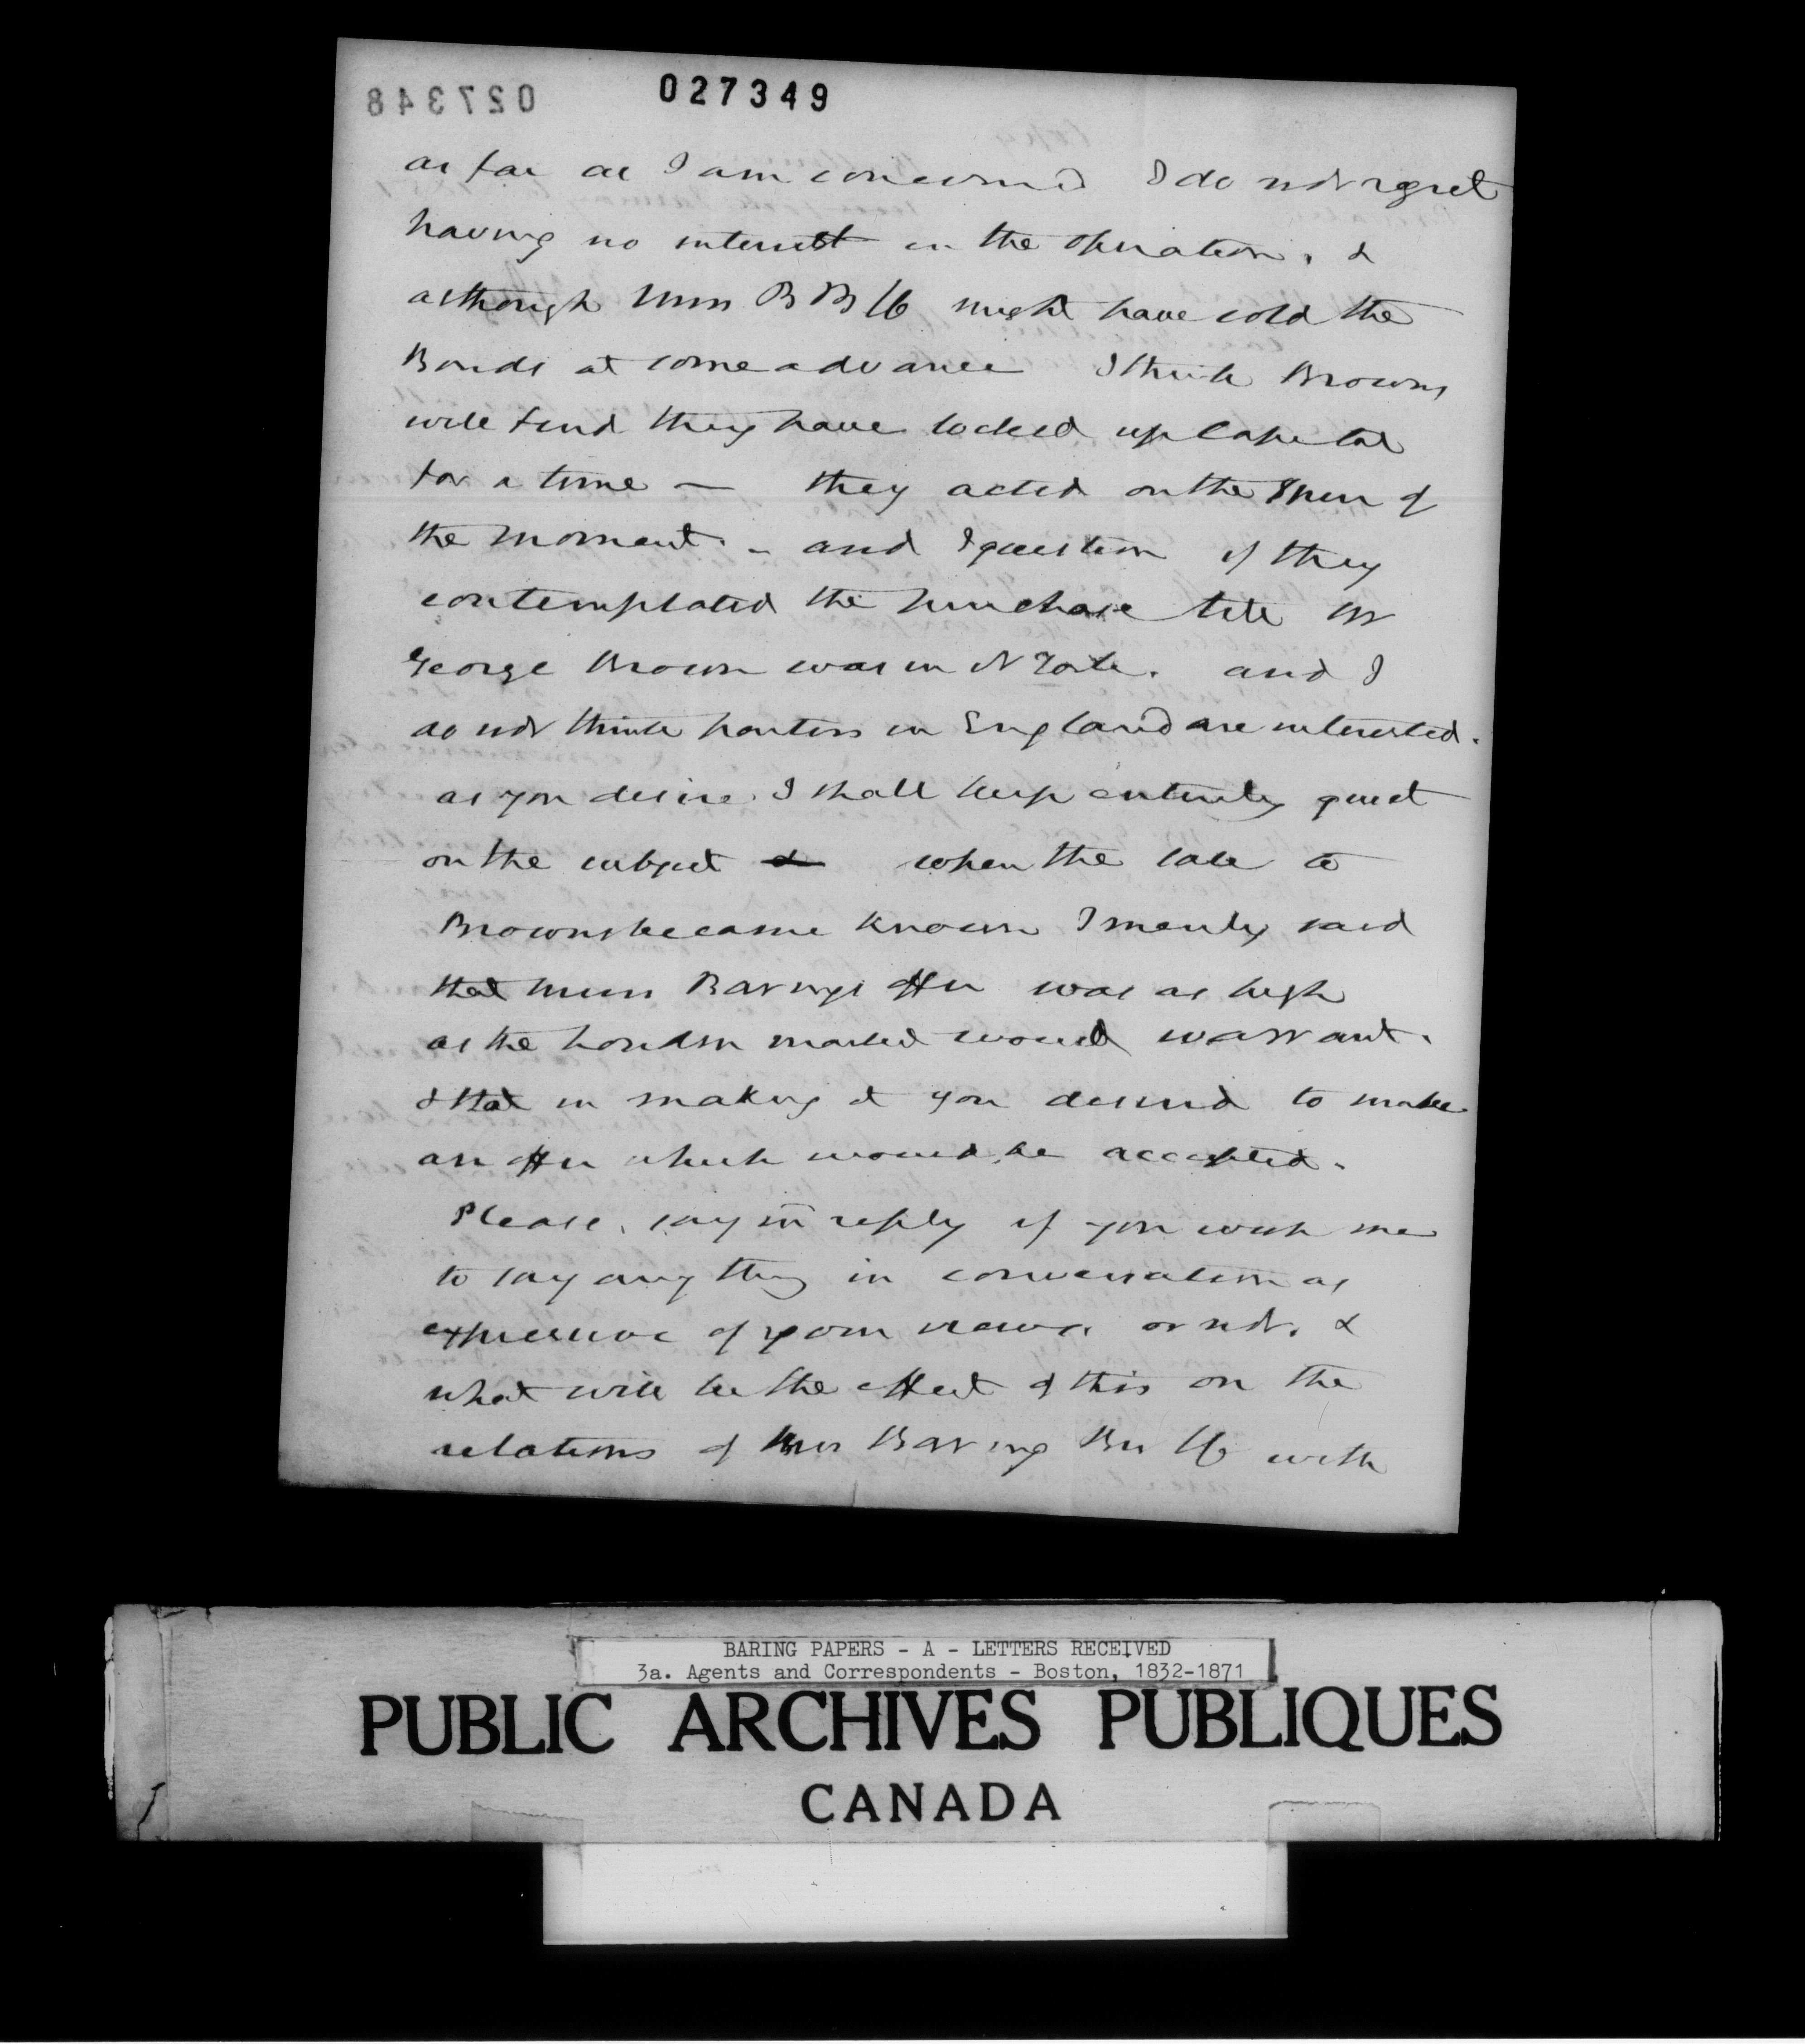 027348
027349
as far as I am concerned I do not regret
having no interest in the operation. &
although Messrs B B & Co might have sold the
Bonds at some advance I think Browns
will find they have locked up Capital
for a time — they acted on the Spur of
the moment. - and I question if they
contemplated the purchase till Mr
George Brown was in N York. and I
do not think parties in England are interested.
as you desire I shall keep entirely quiet
on the subject & when the sale to
Browns became known I merely said
that Messrs Barings offer was as high
as the London market would warrant.
& that in making it you desired to make
an offer which would be accepted.
Please say in reply if you wish me
to say any thing in conversation as
expressive of your views. or not. &
what will be the effect of this on the
relations of Messrs Baring Bros & Co with
BARING PAPERS - A - LETTERS RECEIVED
3a. Agents and Correspondents - Boston, 1832-1871
PUBLIC ARCHIVES PUBLIQUES
CANADA